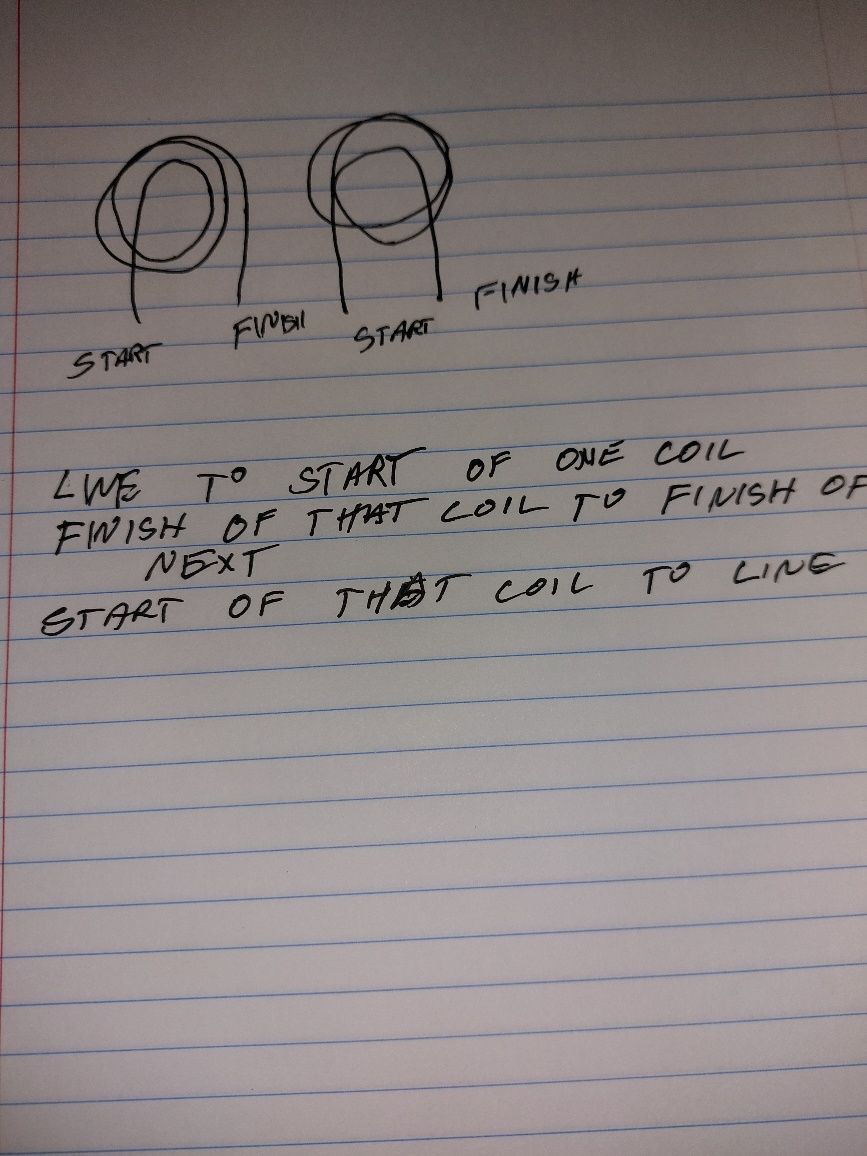 START FINISH START FINISH
LINE TO START OF ONE COIL
FINISH OF THAT COIL TO FINISH OF
NEXT
START OF THAT COIL TO LINE